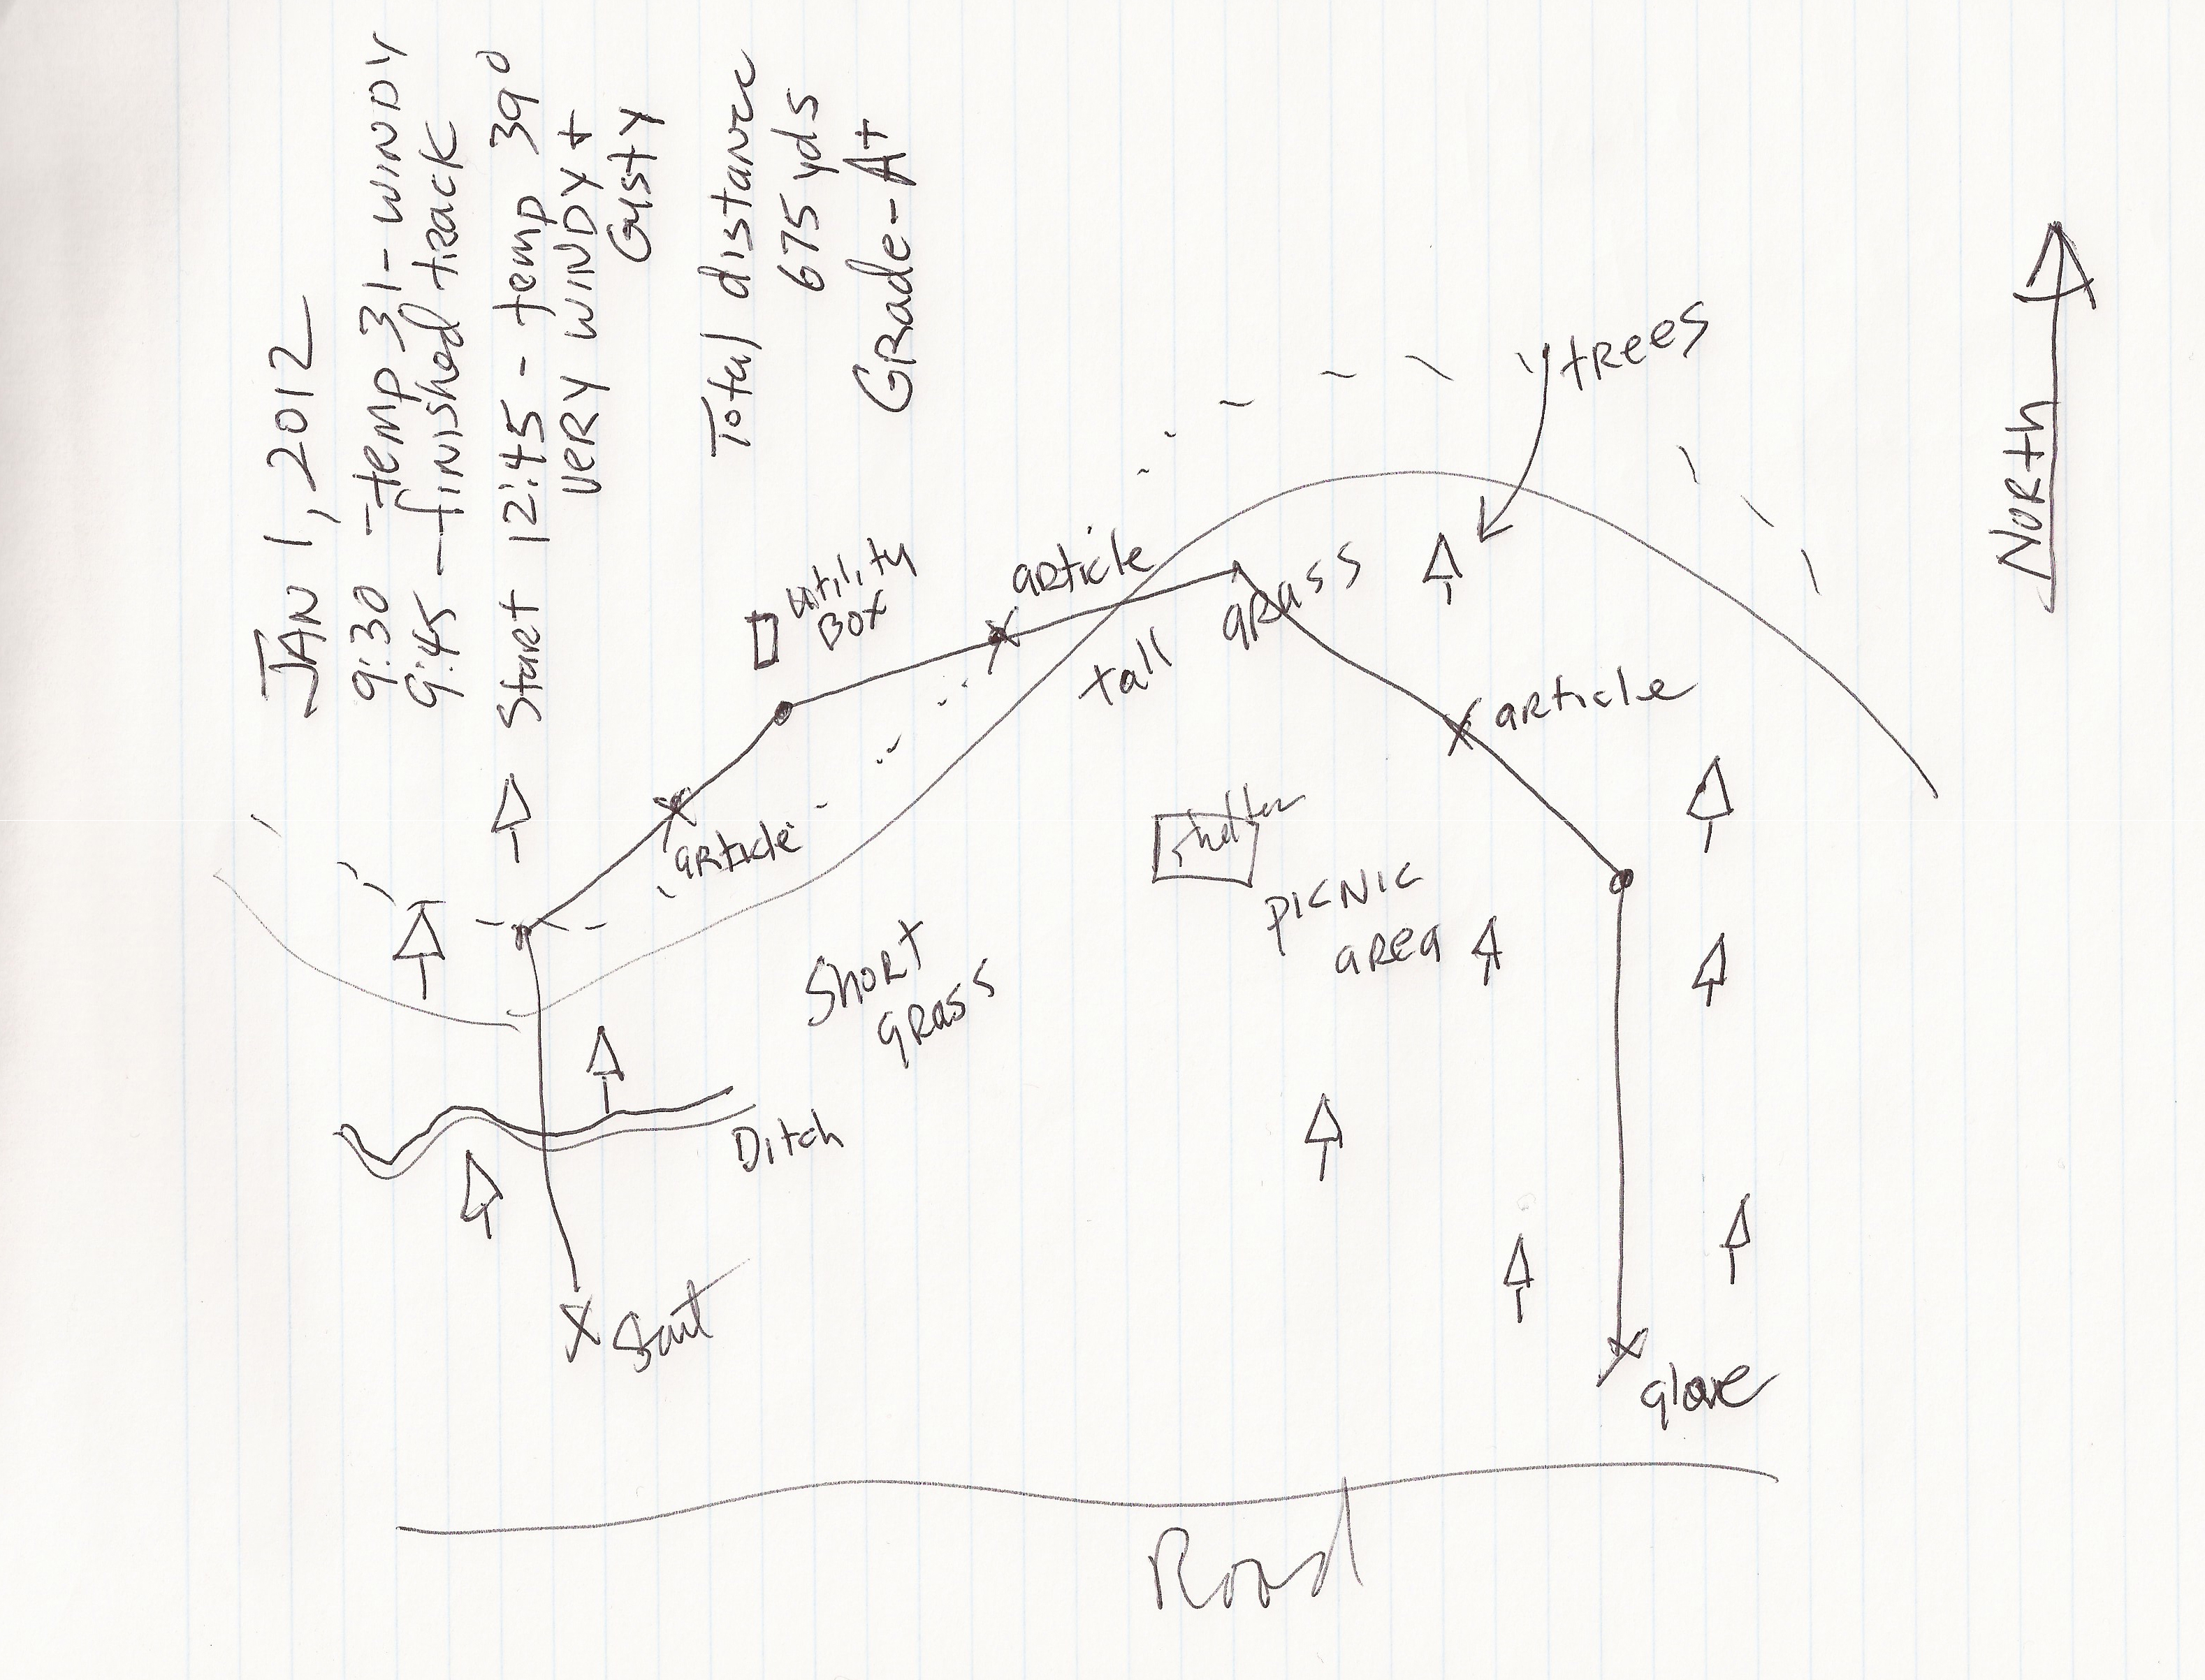 JAN 1, 2012
9:30 - temp 31 - WINDY
9:45 - finished track
Start 12:45 - temp 39°
VERY WINDY +
Gusty
Total distance
675 yds
GRade - A+
trees
North
utility
Box
article
tall grass
article
article
shelter
PICNIC
AREA
Short
grass
Ditch
Start
glove
Road